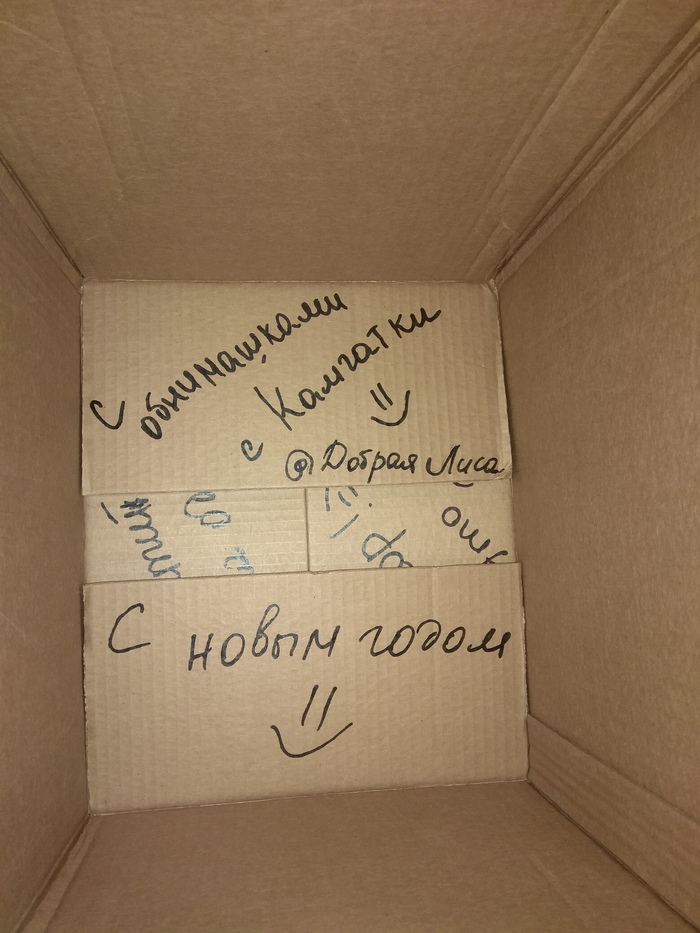 С обнимашками
с Камчатки
@Добрая Лиса
С новым годом